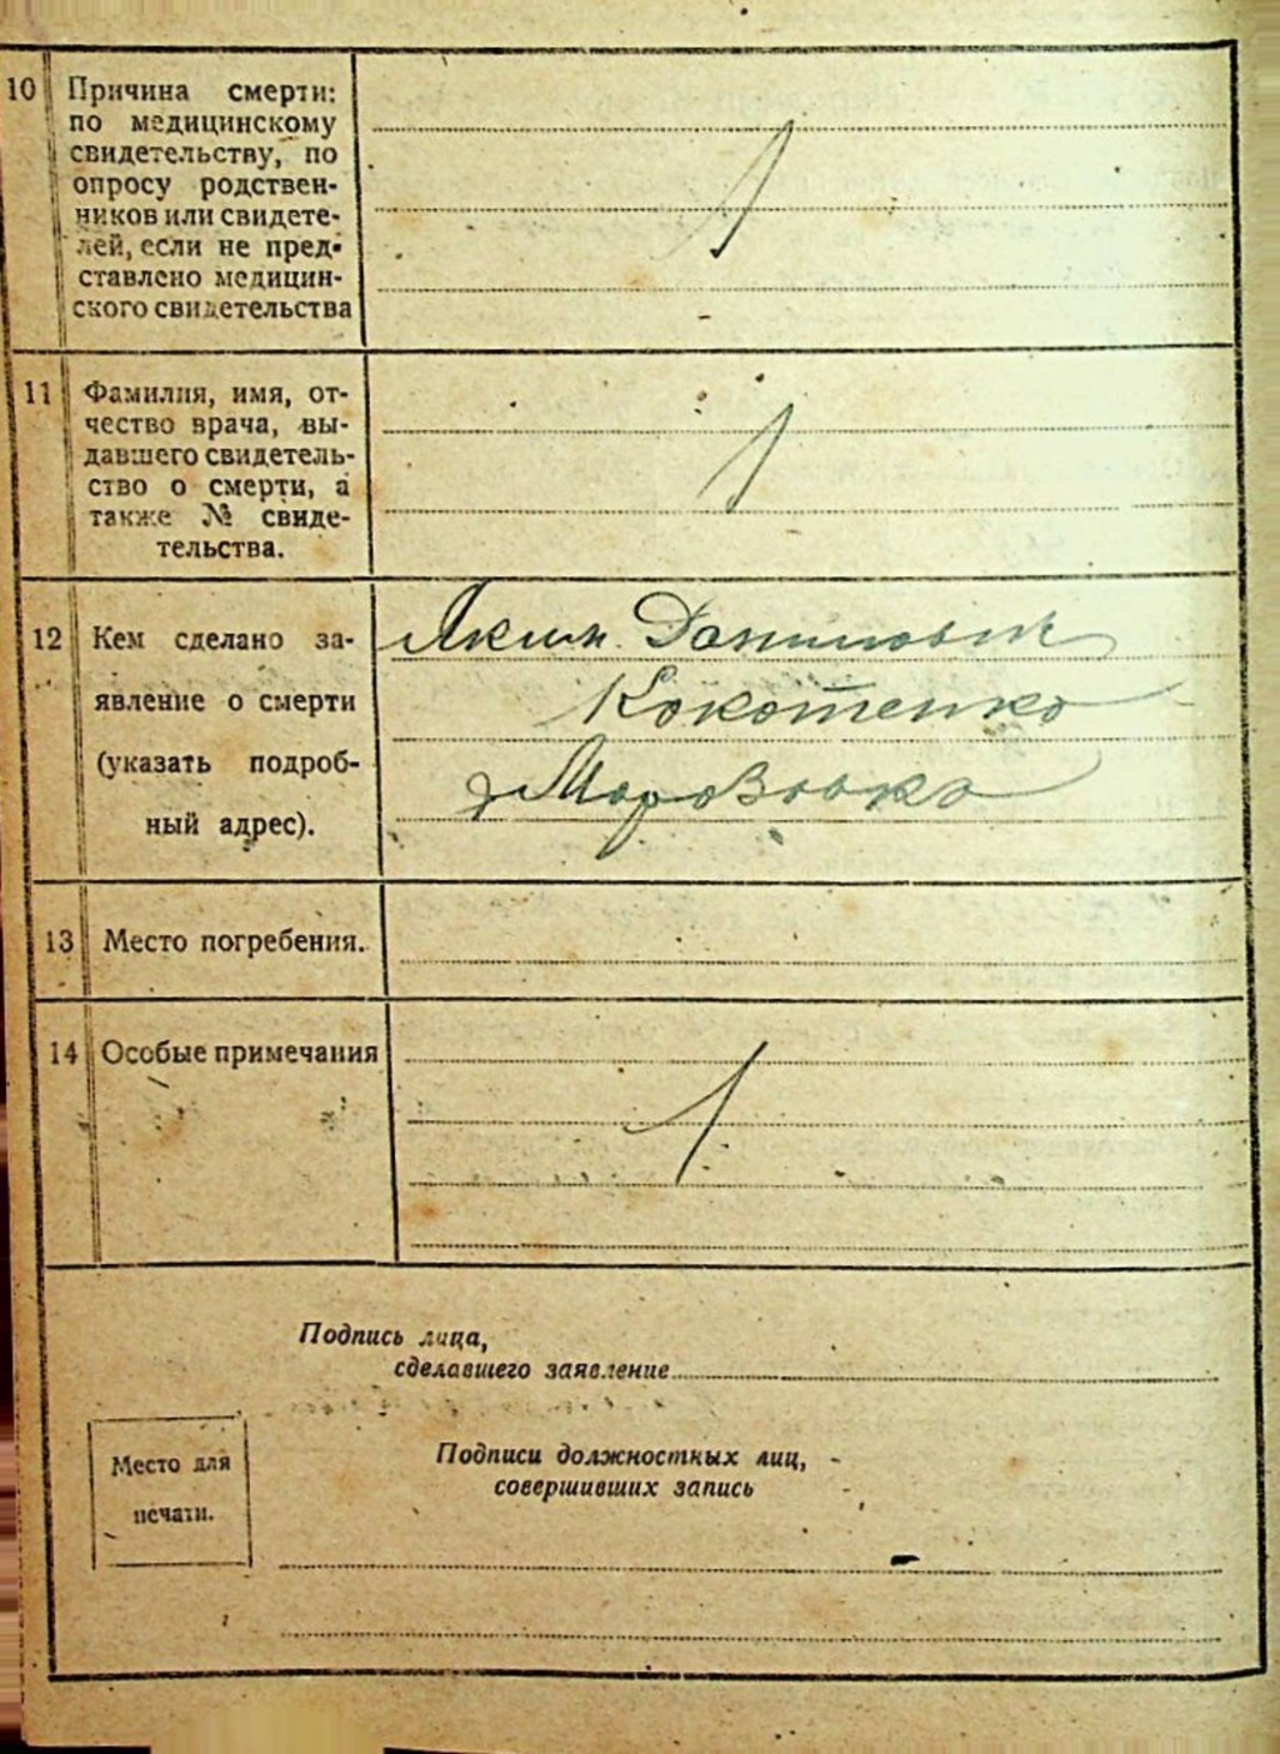 10 Причина смерти:
по медицинскому
свидетельству, по
опросу родствен-
ников или свидете-
лей, если не пред-
ставлено медицин-
ского свидетельства
11 Фамилия, имя, от-
чество врача, вы-
давшего свидетель-
ство о смерти, а
также № свиде-
тельства.
12 Кем сделано за-
явление о смерти
(указать подроб-
ный адрес).
Яким Данилович
Кокотенко
13 Место погребения.
14 Особые примечания
Подпись лица,
сделавшего заявление
Место для
печати.
Подписи должностных лиц,
совершивших запись